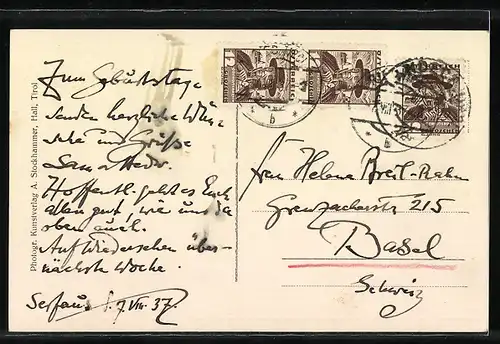 Zum Geburtstage
senden herzliche Wün-
sche und Grüße
Hoffentl. geht es Euch
allen gut, wie uns da
oben auch.
Auf Wiedersehen über-
nächste Woche.
Serfaus 7.VIII.37.
Photogr. Kunstverlag A. Stockhammer, Hall, Tirol
Frau Helene
Grenzacherstr 215
Basel
Schweiz